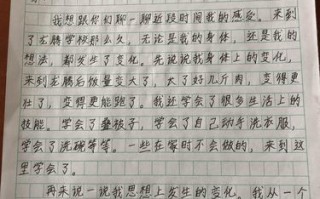 我想跟你们聊一聊近段时间我的感受。来到
了龙腾学校那么久,无论是我的身体,还是我的
想法,都发生了变化。先说说我身体上的变化,
来到龙腾后饭量变大了,太了好几斤肉,变得更
壮了,变得更能跑了。我还学会了很多生活上的
技能。学会了叠被子,学会了自己动手洗衣服,
学会了洗碗等等。一些在家时不会做的,来到这
里学会了。
再来说一说我思想上发生的变化。我从一个